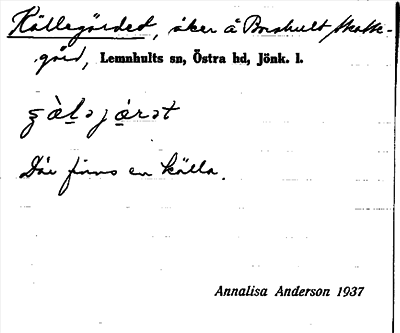 Källegärdet, åker å Boshult skatte-
gård, Lemnhults sn, Östra hd, Jönk. l.
Där finns en källa.
Annalisa Anderson 1937